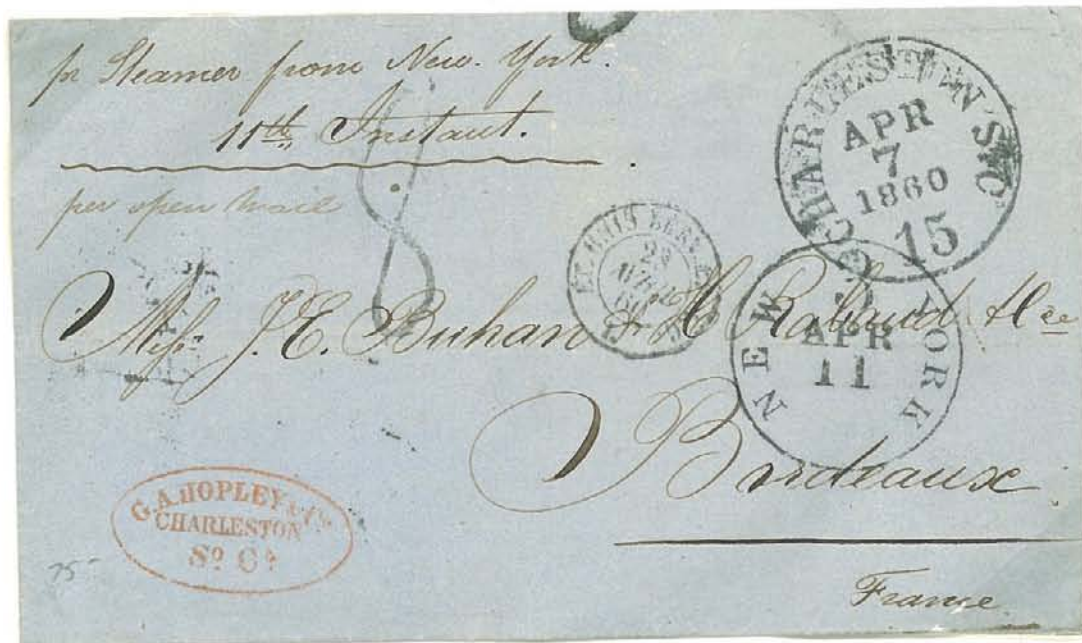 pr Steamer from New. York.
11th Instant.
per open mail
8
CHARLESTON S.C.
APR
7
1860
15
NEW YORK
APR
11
J. E. Buhan & H Rabaud & Cie
Bordeaux
France
G.A. HOPLEY & Co
CHARLESTON
So Ca
75